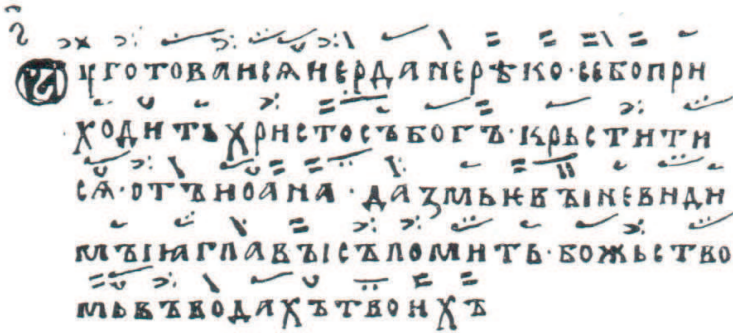 г҃
Оуготоваисѧиерданерѣко·себопри
ходитьхристосъбогъ·крьстити
сѧ·отъиоана·дазмьѥвъіневиди
мъіꙗглавъісъломить·божьство
мьвъводахътвоихъ